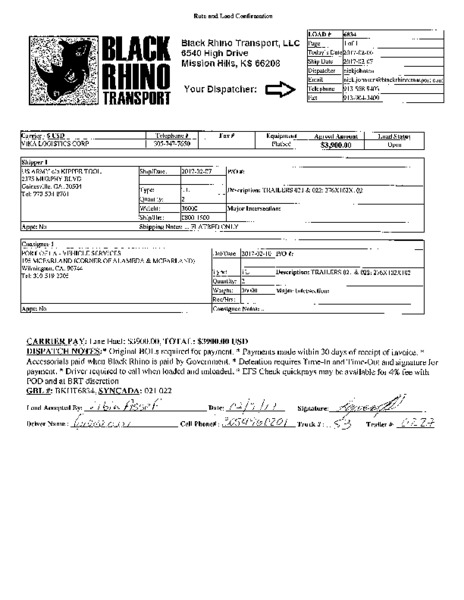 Rate and Load Confirmation
BLACK RHINO TRANSPORT
Black Rhino Transport, LLC
6540 High Drive
Mission Hills, KS 66208
Your Dispatcher:
LOAD # 6834
Page 1 of 1
Today's Date 2017-02-06
Ship Date 2017-02-07
Dispatcher
Email
Telephone 913
Fax 913
Carrier - $ USD Telephone # Fax # Equipment Agreed Amount Load Status
VIKA LOGISTICS CORP 305-747-7650 Flatbed $3,900.00 Open
Shipper 1
US ARMY c/o KIPPER TOOL
2375 MURPHY BLVD
Gainesville, GA, 30504
Tel: 770 531 8701
Ship Date: 2017-02-07 P/O #:
Type: TL Description: TRAILERS 021 & 022: 276X102X102
Quantity: 2
Weight: 36000 Major Intersection:
Ship Hrs: 0800 1500
Appt: No Shipping Notes: ... FLATBED ONLY
Consignee 1
PORT OF LA - VEHICLE SERVICES
MCFARLAND (CORNER OF ALAMEDA & MCFARLAND)
Wilmington, CA, 90744
Tel: 310
Del Date: 2017-02-10 P/O #:
Type: TL Description: TRAILERS 021 & 022: 276X102X102
Quantity: 2
Weight: 36000 Major Intersection:
Rec Hrs:
Appt: No Consignee Notes:
CARRIER PAY: Line Haul: $3900.00, TOTAL: $3900.00 USD
DISPATCH NOTES:* Original BOLs required for payment. * Payments made within 30 days of receipt of invoice. *
Accessorials paid when Black Rhino is paid by Government. * Detention requires Time-In and Time-Out and signature for
payment. * Driver required to call when loaded and unloaded. * EFS Check quickpays may be available for 4% fee with
POD and at BRT discretion
GBL #: BKHT6834, SYNCADA: 021 022
Load Accepted By: Date: Signature:
Driver Name: Cell Phone#: Truck #: 53 Trailer #: 0227